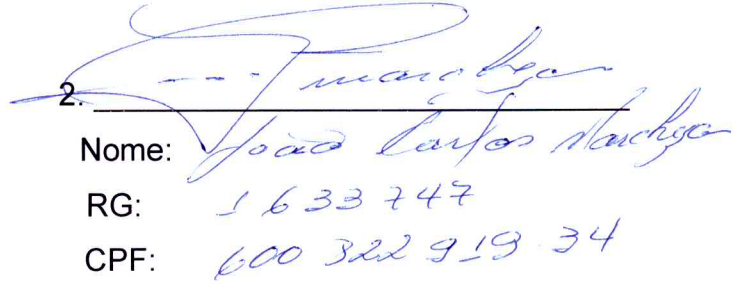 2.
Nome: João Carlos
RG: 1633747
CPF: 600 322 919 34